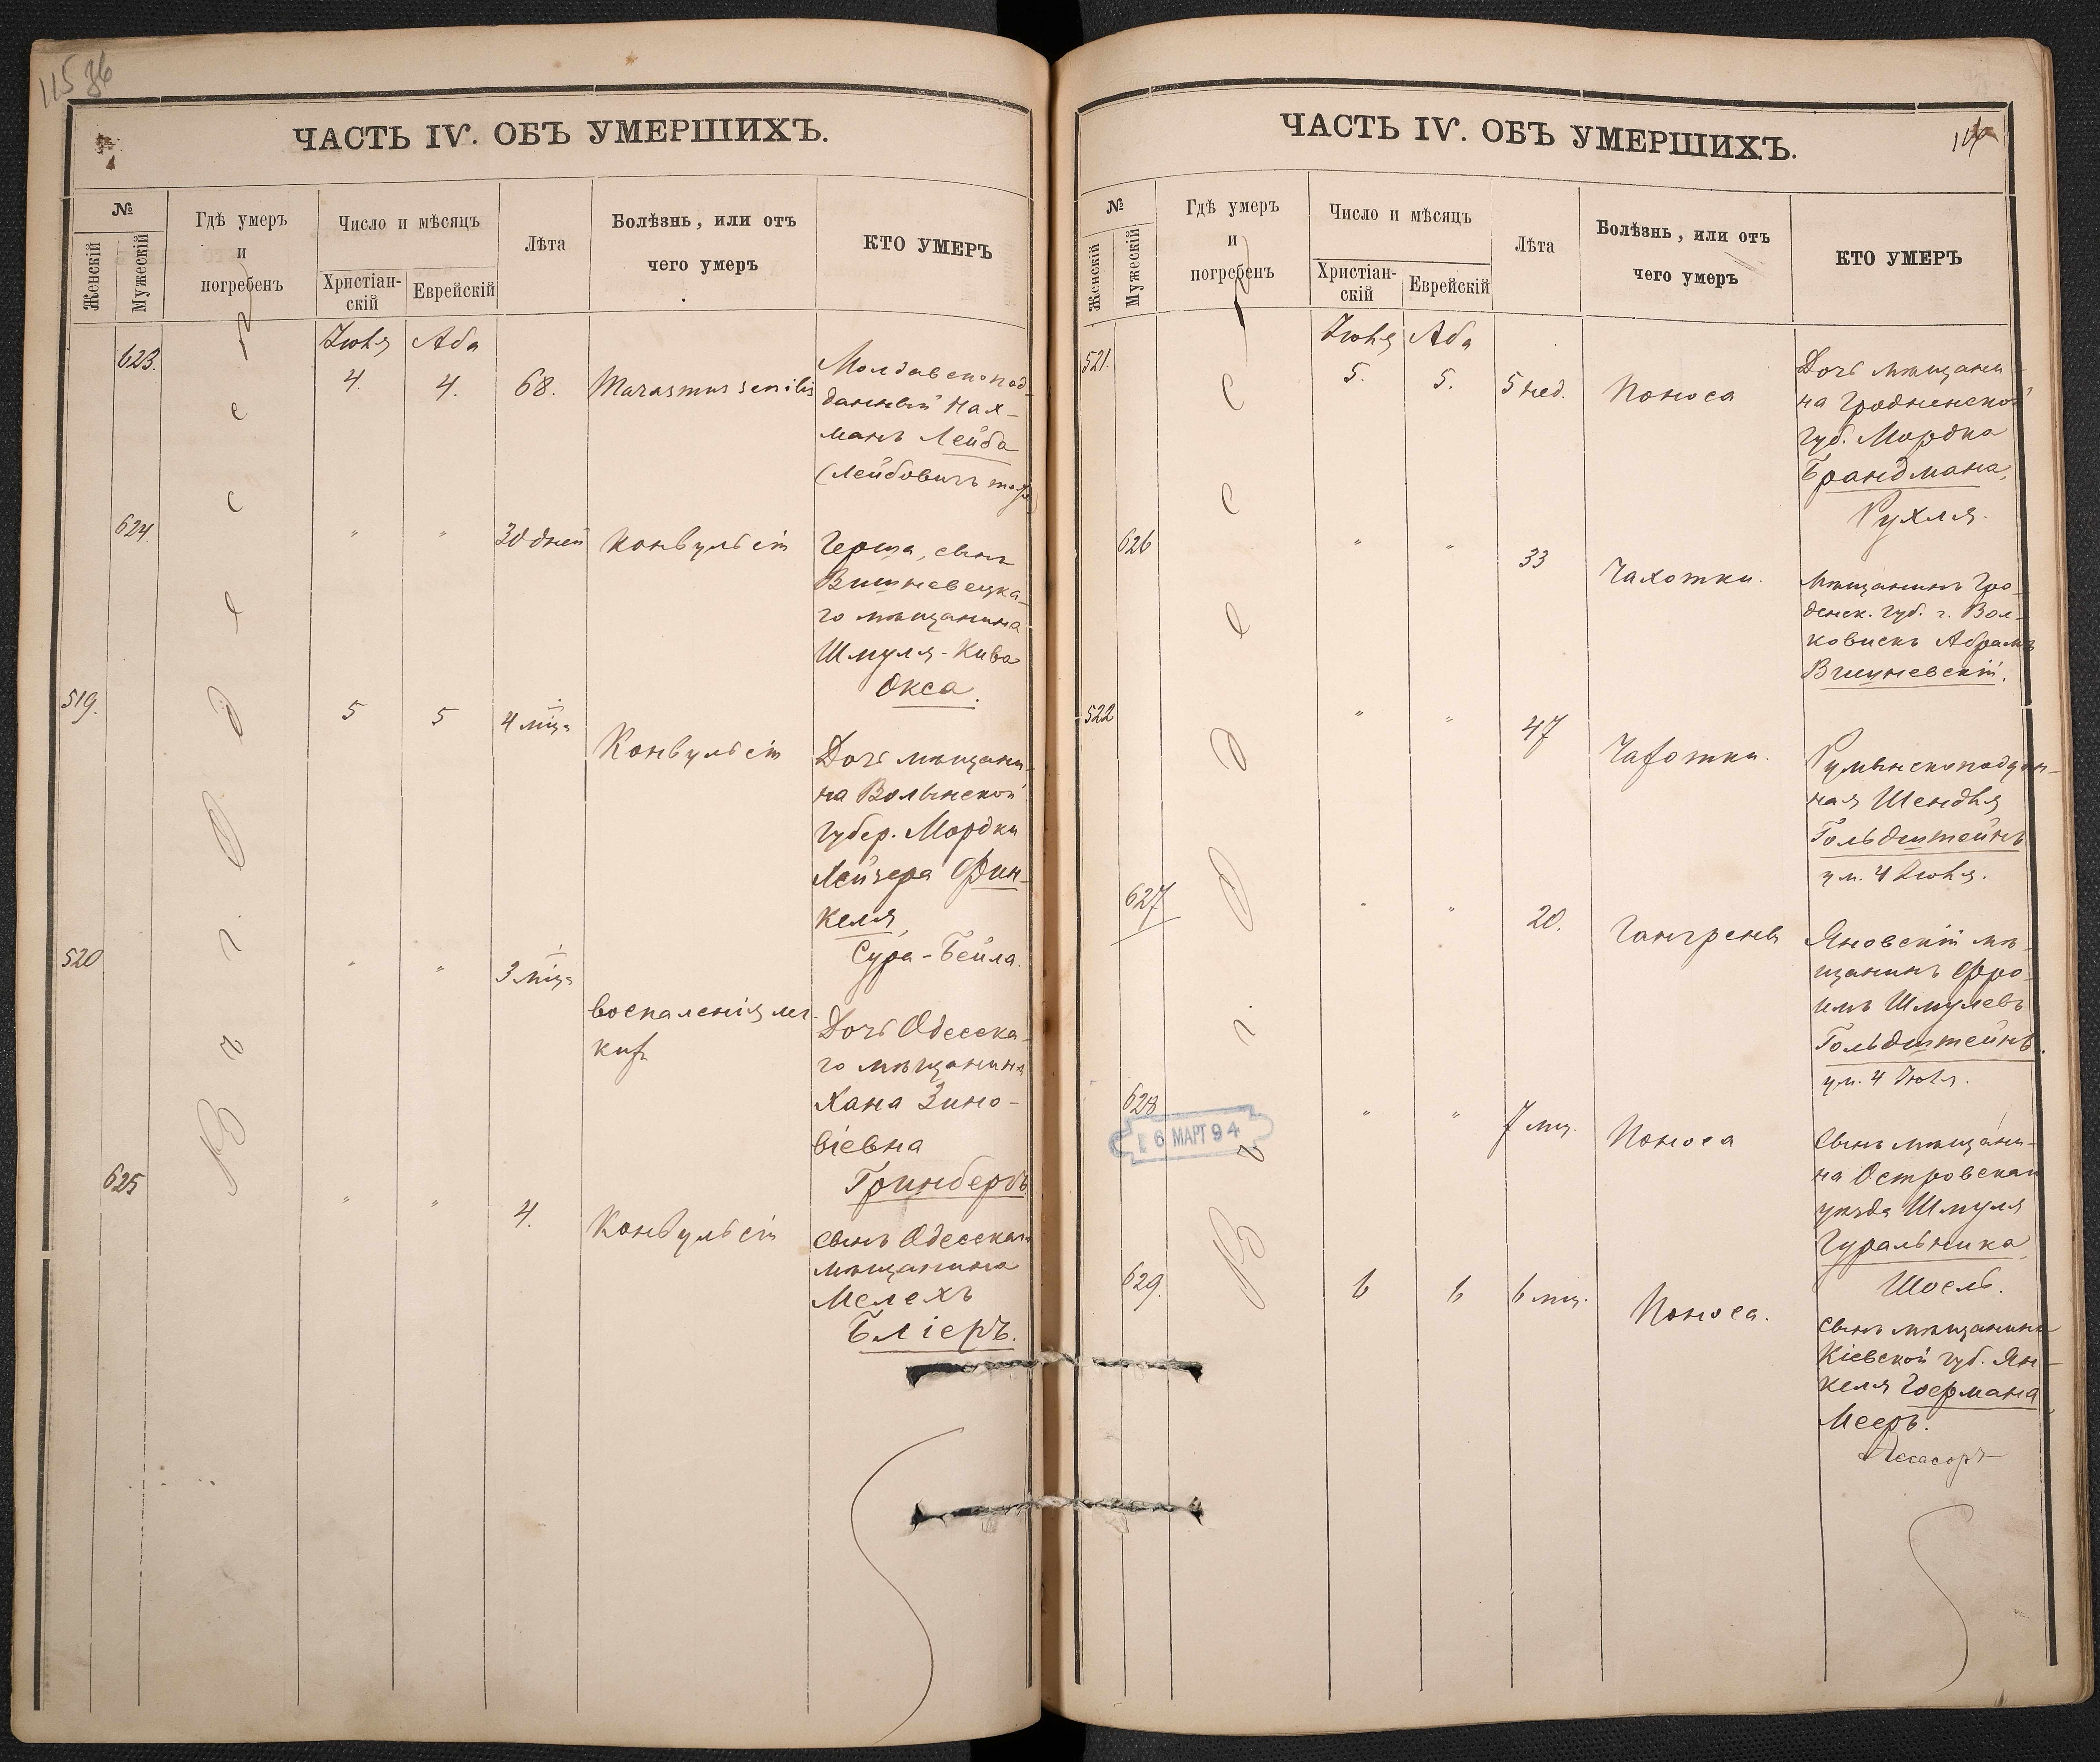 ЧАСТЬ IV. ОБЪ УМЕРШИХЪ.
№
Женскій
Мужескій
Гдѣ умеръ
и
погребенъ
Число и мѣсяцъ
Христіан-
скій
Еврейскій
Лѣта
Болѣзнь, или отъ
чего умеръ
КТО УМЕРЪ
В г. Одессе
Іюля Аба
623. 4. 4. 68. Marasmus senilis
Молдавскопод-
данный Нах-
манъ Лейба
(Лейбовичъ тожъ)
624 " " 30 дней Конвульсіи
Герша, сынъ
Вишневецка-
го мѣщанина
Шмуля-Кива
Окса.
519. 5 5 4 мца Конвульсіи
Дочь мѣщани-
на Волынской
Губер. Мордки
Лейзера Фин-
келя,
Сура-Бейла.
520 " " 3 мца
воспаленія лег-
кихъ
Дочь Одесска-
го мѣщанина
Хана Зино-
віевна
Гринбергъ
625 " " 4. Конвульсіи
Сынъ Одесскаго
мѣщанина
Мелехъ
Бліеръ.
ЧАСТЬ IV. ОБЪ УМЕРШИХЪ.
№
Женскій
Мужескій
Гдѣ умеръ
и
погребенъ
Число и мѣсяцъ
Христіан-
скій
Еврейскій
Лѣта
Болѣзнь, или отъ
чего умеръ
КТО УМЕРЪ
В г. Одессе
Іюля Аба
521. 5. 5. 5 нед. Поноса
Дочь мѣщани-
на Гродненской
Губ. Мордка
Брандмана,
Рухля.
626 " " 33 Чахотки.
Мѣщанинъ Гро-
денск. Губ. г. Вол-
ковискъ Абрамъ
Вишневскій.
522 " " 47 Чахотки.
Румынскоподдан-
ная Шендля
Гольдштейнъ
ум. 4 Іюля.
627 " " 20. Гангрены
Яновскій мѣ-
щанинъ Фро-
имъ Шмулевъ
Гольдштейнъ.
ум. 4 Іюля.
628 " " 7 мц. Поноса
6 МАРТ 94
Сынъ мѣщани-
на Островскаго
уѣзда Шмуля
Гуральника,
Шоель.
629. 6 6 6 мц. Поноса.
Сынъ мѣщанина
Кіевской губ. Ян-
келя Гоермана
Мееръ.